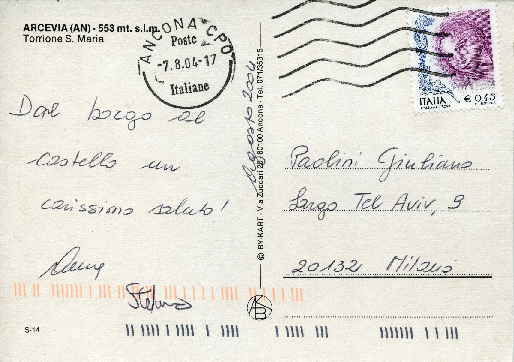 ARCEVIA (AN) - 553 mt. s.l.m.
Torrione S. Maria
ANCONA CPO
Poste
-7.8.04-17
Italiane
ITALIA
€ 0,45
Dal borgo al
castello un
carissimo saluto!
Stefano
agosto 2004
© BY-KART - Via Zuccari 28/ 60100 Ancona - Tel. 071/35315
Paolini Giuliano
Largo Tel Aviv, 9
20132 Milano
S-14